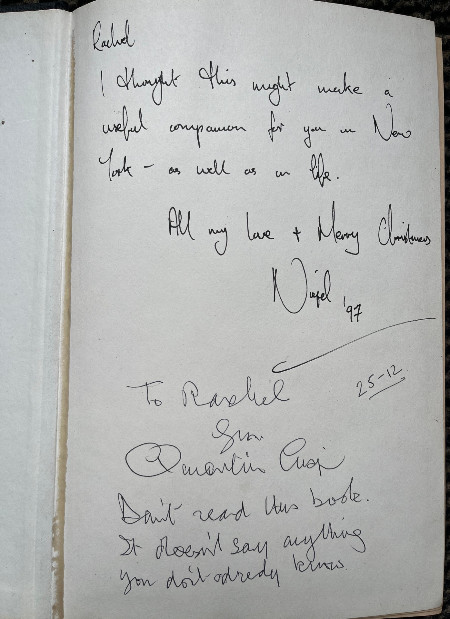 Rachel
I thought this might make a
useful companion for you in New
York – as well as in life.
All my love + Merry Christmas
Nigel '97
25-12
To Rachel
from
Quentin Crisp
Don't read this book.
It doesn't say anything
you don't already know